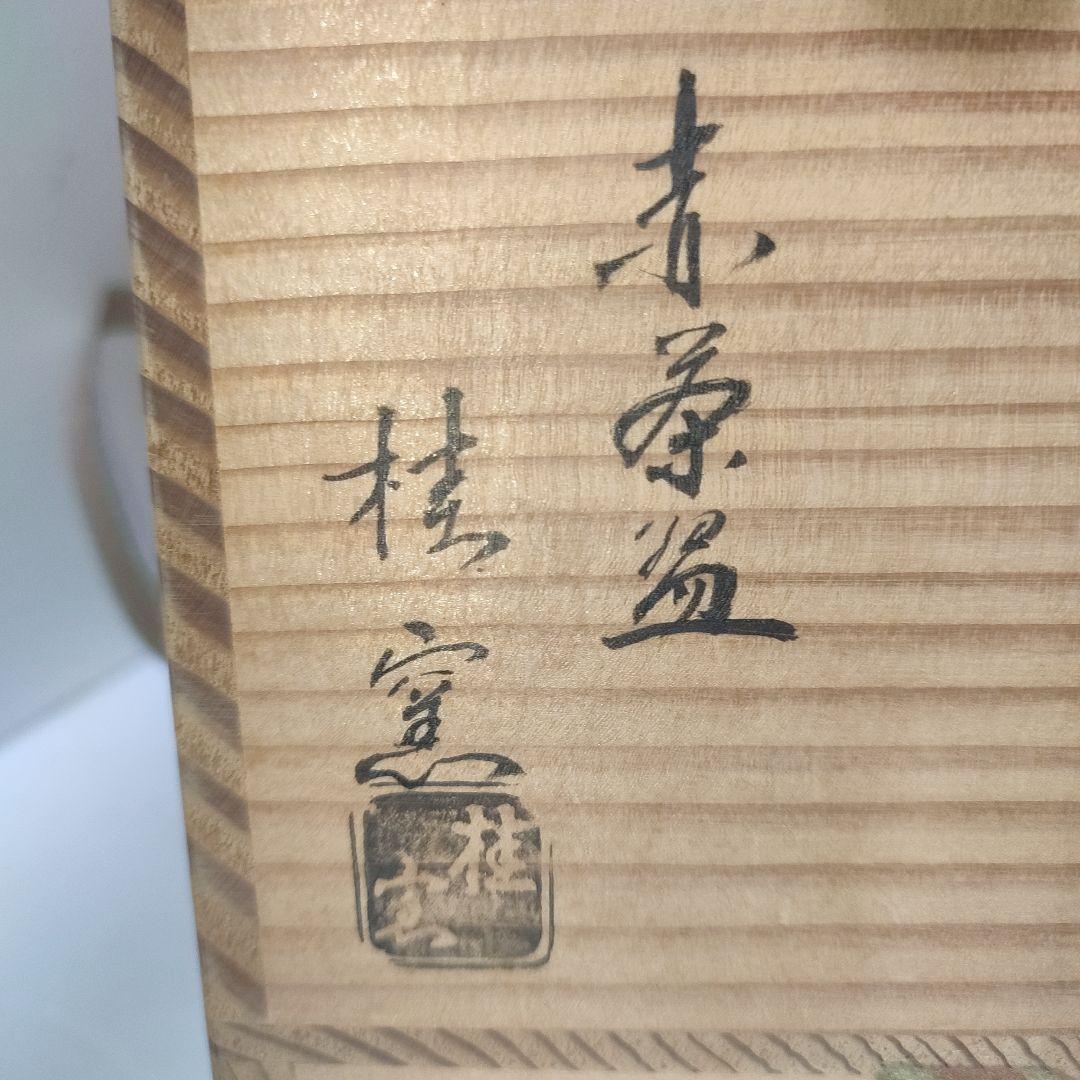 赤茶盌
桂窯